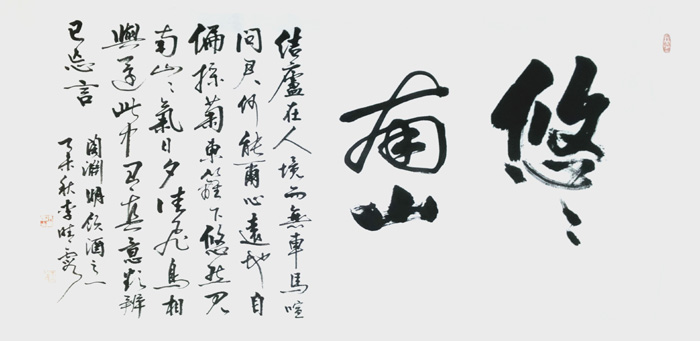 悠〻
南山
结廬在人境而無車馬喧
问君何能爾心遠地自
偏採菊東籬下悠然見
南山〻氣日夕佳飛鳥相
與還此中有真意欲辨
已忘言
陶淵明飲酒之一
丁未秋李